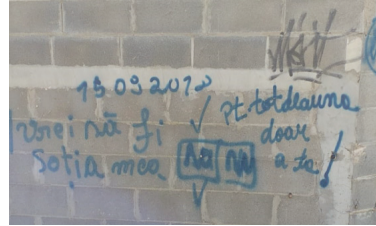 15092010
vrei să fi
soția mea
pt. totdeauna
doar
a ta!